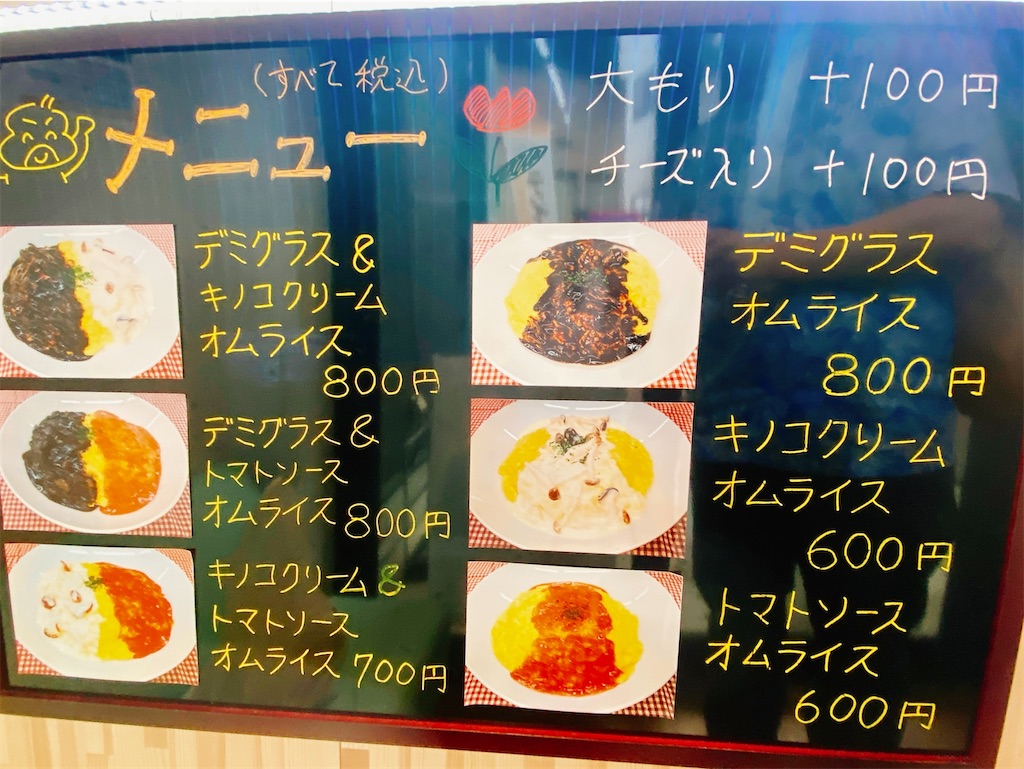 (すべて税込)
メニュー
大もり +100円
チーズ入り +100円
デミグラス&
キノコクリーム
オムライス
800円
デミグラス&
トマトソース
オムライス 800円
キノコクリーム&
トマトソース
オムライス 700円
デミグラス
オムライス
800円
キノコクリーム
オムライス
600円
トマトソース
オムライス
600円